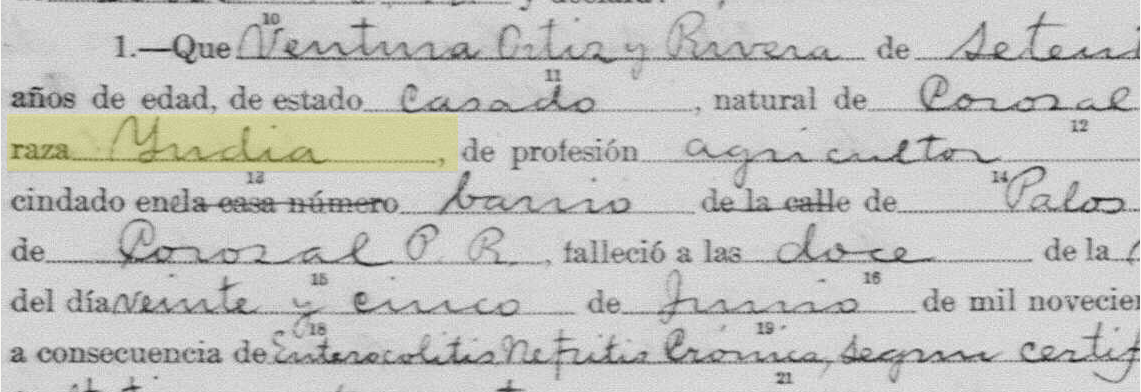 y declara:
10
1.—Que Ventura Ortiz y Rivera de Setent
11
años de edad, de estado Casado, natural de Corozal
12
raza Yndia, de profesión agricultor
13 14
cindado en la casa número barrio de la calle de Palos
de Corozal P. R., falleció a las doce de la
15 16
del día veinte y cinco de Junio de mil novecien
18 19
a consecuencia de Enterocolitis Nefritis Crónica, segun certif
21